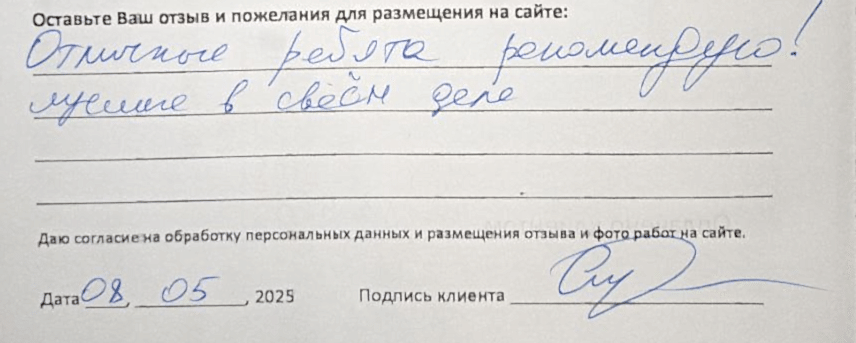 Оставьте Ваш отзыв и пожелания для размещения на сайте:
Отличные ребята рекомендую!
лучшие в своём деле
Даю согласие на обработку персональных данных и размещения отзыва и фото работ на сайте.
Дата 08, 05, 2025 Подпись клиента